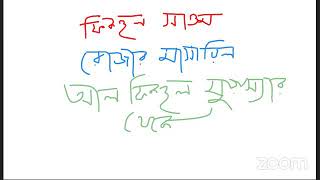 ফিকহুল সাওম
রোজার মাসায়িল
আল ফিকহুল মুয়াস্যার
থেকে
zoom